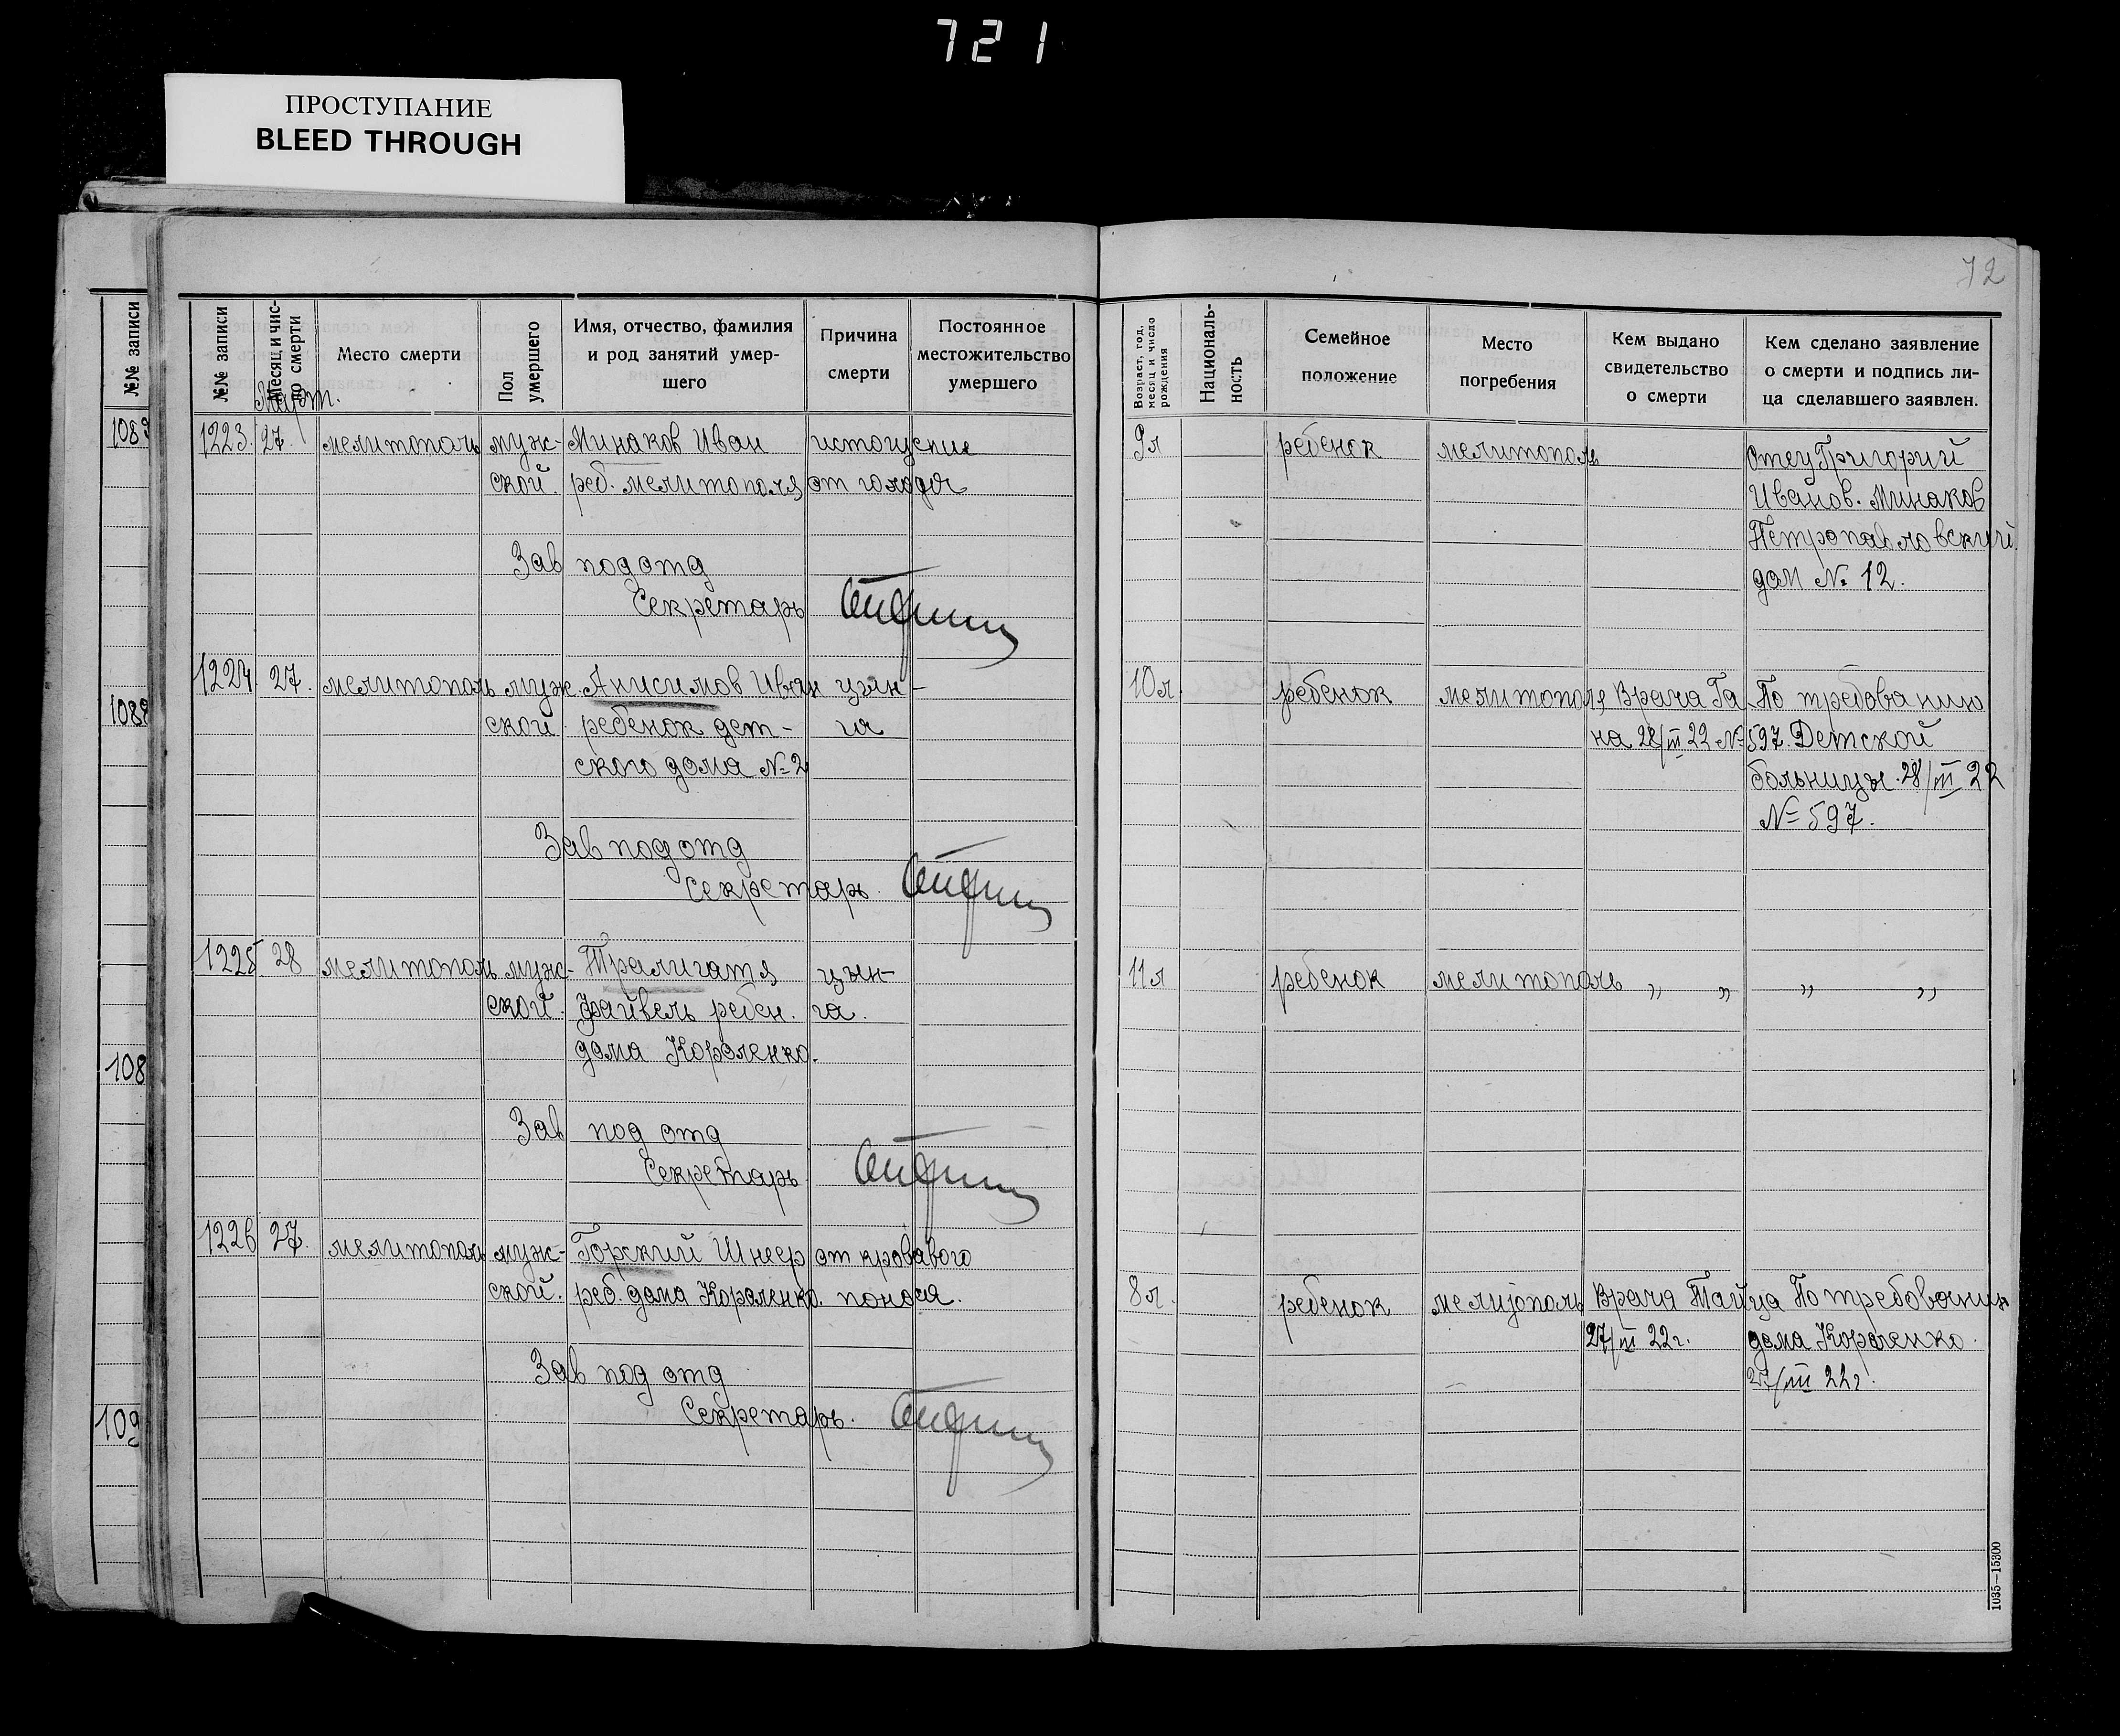 721
ПРОСТУПАНИЕ
BLEED THROUGH
72
№№ записи
№№ записи
Месяц и число смерти
Место смерти
Пол умершего
Имя, отчество, фамилия и род занятий умершего
Причина смерти
Постоянное местожительство умершего
Возраст, год, месяц и число рождения
Националь-ность
Семейное положение
Место погребения
Кем выдано свидетельство о смерти
Кем сделано заявление о смерти и подпись ли-ца сделавшего заявлен.
Март.
1223. 27. мелитополь муж- Минаков Иван истощение 9л ребенок мелитополь Отец Григорий
ской. реб. мелитополя от голода Иванов. Минаков
Петропавловский
Зав подотд дом № 12.
Секретарь
1224 27. мелитополь муж. Анисимов Иван цын- 10л. ребенок мелитополь Врача Га По требованию
ской ребенок дет- га на 28/III 22 № 597. Детской
ского дома №2 больницы. 28/III 22
№ 597.
Зав подотд
Секретарь.
1225 28 мелитополь муж- Тралигатя цын- 11л ребенок мелитополь " " " "
ской. Файвель ребен. га.
дома Короленко.
Зав под отд
Секретарь
1226 27. мелитополь муж- Горский Шнеер от кровавого
ской. реб. дома Короленко. поноса. 8л. ребенок мелитополь Врача Тайца По требованию
27/III 22г. дома Короленко.
27/III 22г.
Зав под отд
Секретарь.
108
109
1035—15300